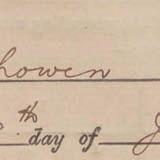 howen
th day of J